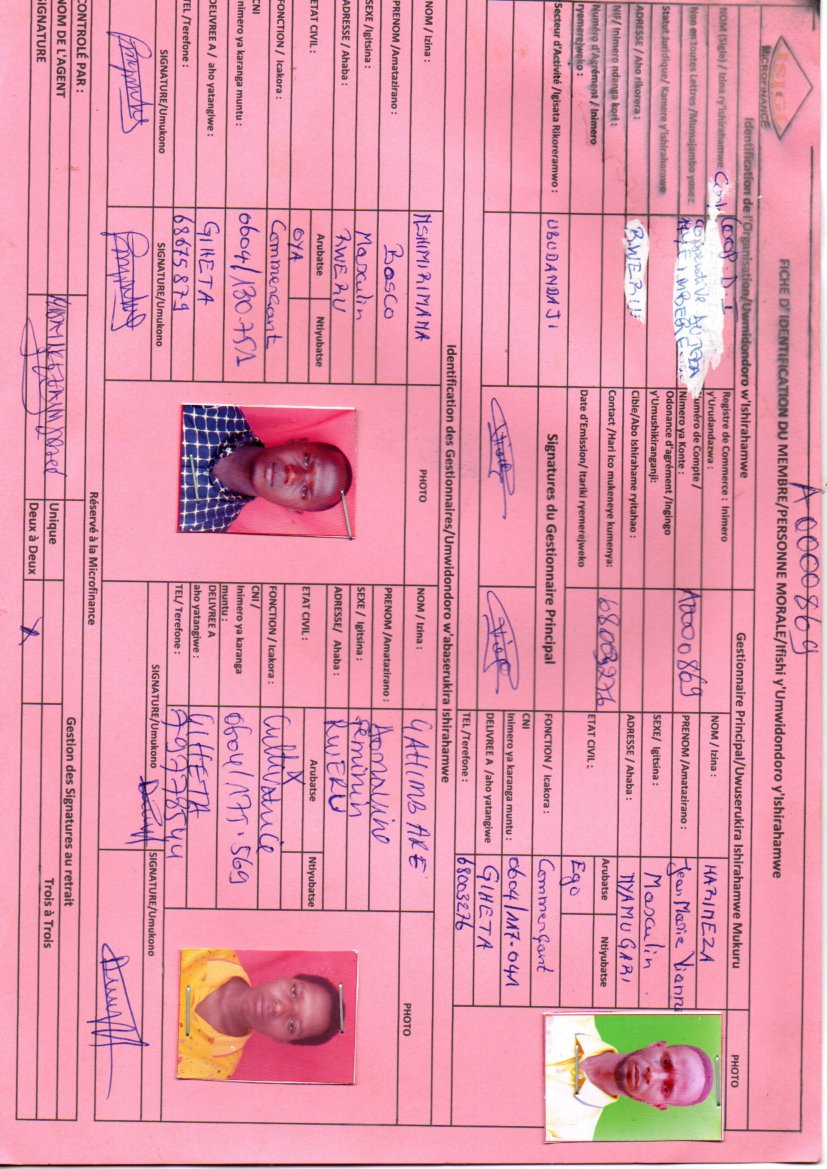 ISIGI
MICROFINANCE
A0000869
FICHE D' IDENTIFICATION DU MEMBRE/PERSONNE MORALE/Ifishi y'Umwidondoro y'Ishirahamwe
Identification de l'Organisation/Uwmidondoro w'Ishirahamwe
NOM (Sigle) / Izina ry'ishirahamwe
Non en toutes Lettres /Mumajambo yose :
Statut Juridique/ Kamere y'Ishirahamwe
ADRESSE / Aho rikorera :
BWERU
NIF/ Inimero ndanga kori :
Numéro d'Agrément / Inimero
ryemerejweko :
Secteur d'Activité /Igisata Rikoreramwo :
UBUDANDAJI
Registre de Commerce : Inimero
y'Urudandazwa :
Numéro de Compte /
Nimero ya Konte :
A0000869
Odonance d'agrément /Ingingo
y'Umushikiranganji:
Cible/Abo Ishirahame ryitahao :
Contact /Hari Ico mukeneye kumenya:
68003276
Date d'Emission/ Itariki ryemerejweko
Signatures du Gestionnaire Principal
Gestionnaire Principal/Uwuserukira Ishirahamwe Mukuru
PHOTO
NOM / Izina :
HARIMEZA
PRENOM /Amatazirano :
Jean Marie Vianney
SEXE/ Igitsina :
Masculin
ADRESSE / Ahaba :
NYAMUGARI
ETAT CIVIL :
Arubatse
Ntiyubatse
Ego
FONCTION / Icakora :
Commerçant
CNI
Inimero ya karanga muntu :
0604/117.041
DELIVREE A /aho yatangiwe
GIHETA
TEL /Terefone :
68003276
Identification des Gestionnaires/Umwidondoro w'abaserukira Ishirahamwe
NOM / Izina :
NSHIMIRIMANA
PRENOM /Amatazirano :
Bosco
SEXE /Igitsina :
Masculin
ADRESSE / Ahaba :
BWERU
ETAT CIVIL :
Arubatse
Ntiyubatse
OYA
FONCTION / Icakora :
Commerçant
CNI
nimero ya karanga muntu :
0604/130.751
DELIVREE A / aho yatangiwe :
GIHETA
TEL /Terefone :
68675879
SIGNATURE/Umukono
SIGNATURE/Umukono
PHOTO
NOM / Izina :
GAHIMBARE
PRENOM /Amatazirano :
SEXE / Igitsina :
Feminin
ADRESSE/ Ahaba :
ETAT CIVIL :
Arubatse
Ntiyubatse
X
FONCTION / Icakora :
Cultivatrice
CNI /
Inimero ya karanga
muntu :
0604/175.569
DELIVREE A
aho yatangiwe :
GIHETA
TEL/ Terefone :
SIGNATURE/Umukono
SIGNATURE/Umukono
PHOTO
Réservé à la Microfinance
CONTROLÉ PAR :
NOM DE L'AGENT
SIGNATURE
Gestion des Signatures au retrait
Unique
Deux à Deux
X
Trois à Trois